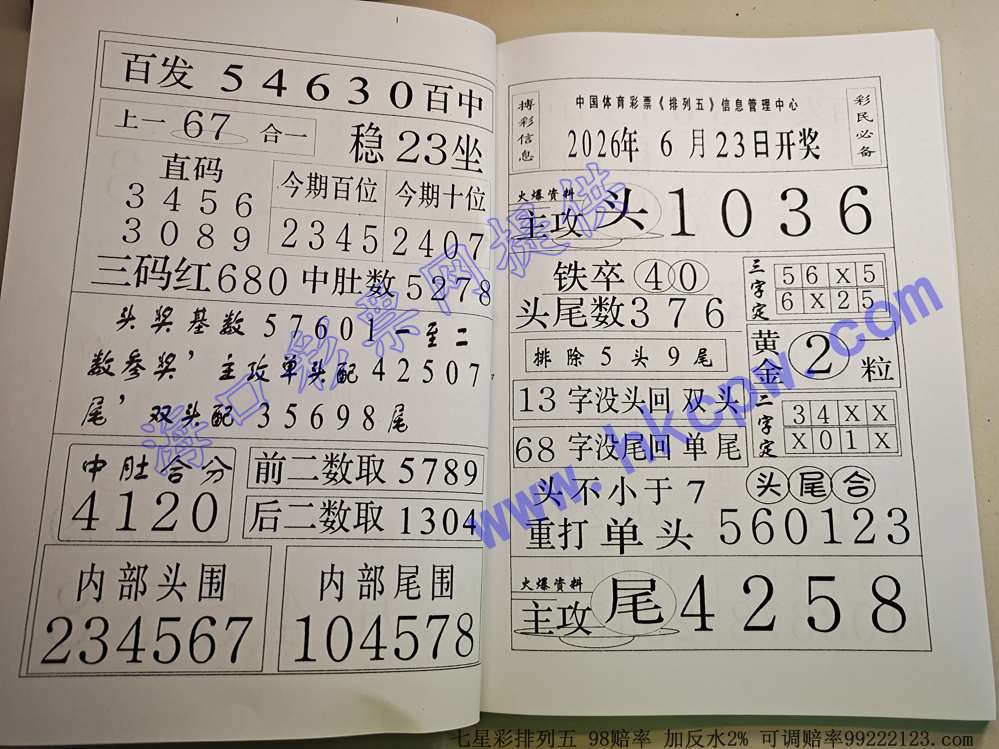 1
百发 54630 百中
上一 67 合一
稳 23 坐
直码
3456
3089
今期百位 今期十位
2345 2407
三码红 680 中肚数 5278
头奖基数 57601 一至二
数参奖’主攻单头配 42507
尾’双头配 35698 尾
中肚合分
4120
前二数取 5789
后二数取 1304
内部头围
234567
内部尾围
104578
7
搏彩信息
中国体育彩票《排列五》信息管理中心
2026年 6 月 23日开奖
彩民必备
火爆资料
主攻 头 1036
铁卒 40
头尾数 376
三字定
56X5
6X25
排除 5 头 9 尾
黄金 2 一粒
13 字没头回 双头
68 字没尾回 单尾
二字定
34XX
X01X
头不小于 7 头尾合
重打 单头 560123
火爆资料
主攻 尾 4258
海口彩票网提供
www.hkcpw.com
七星彩排列五 98赔率 加反水2% 可调赔率99222123.com